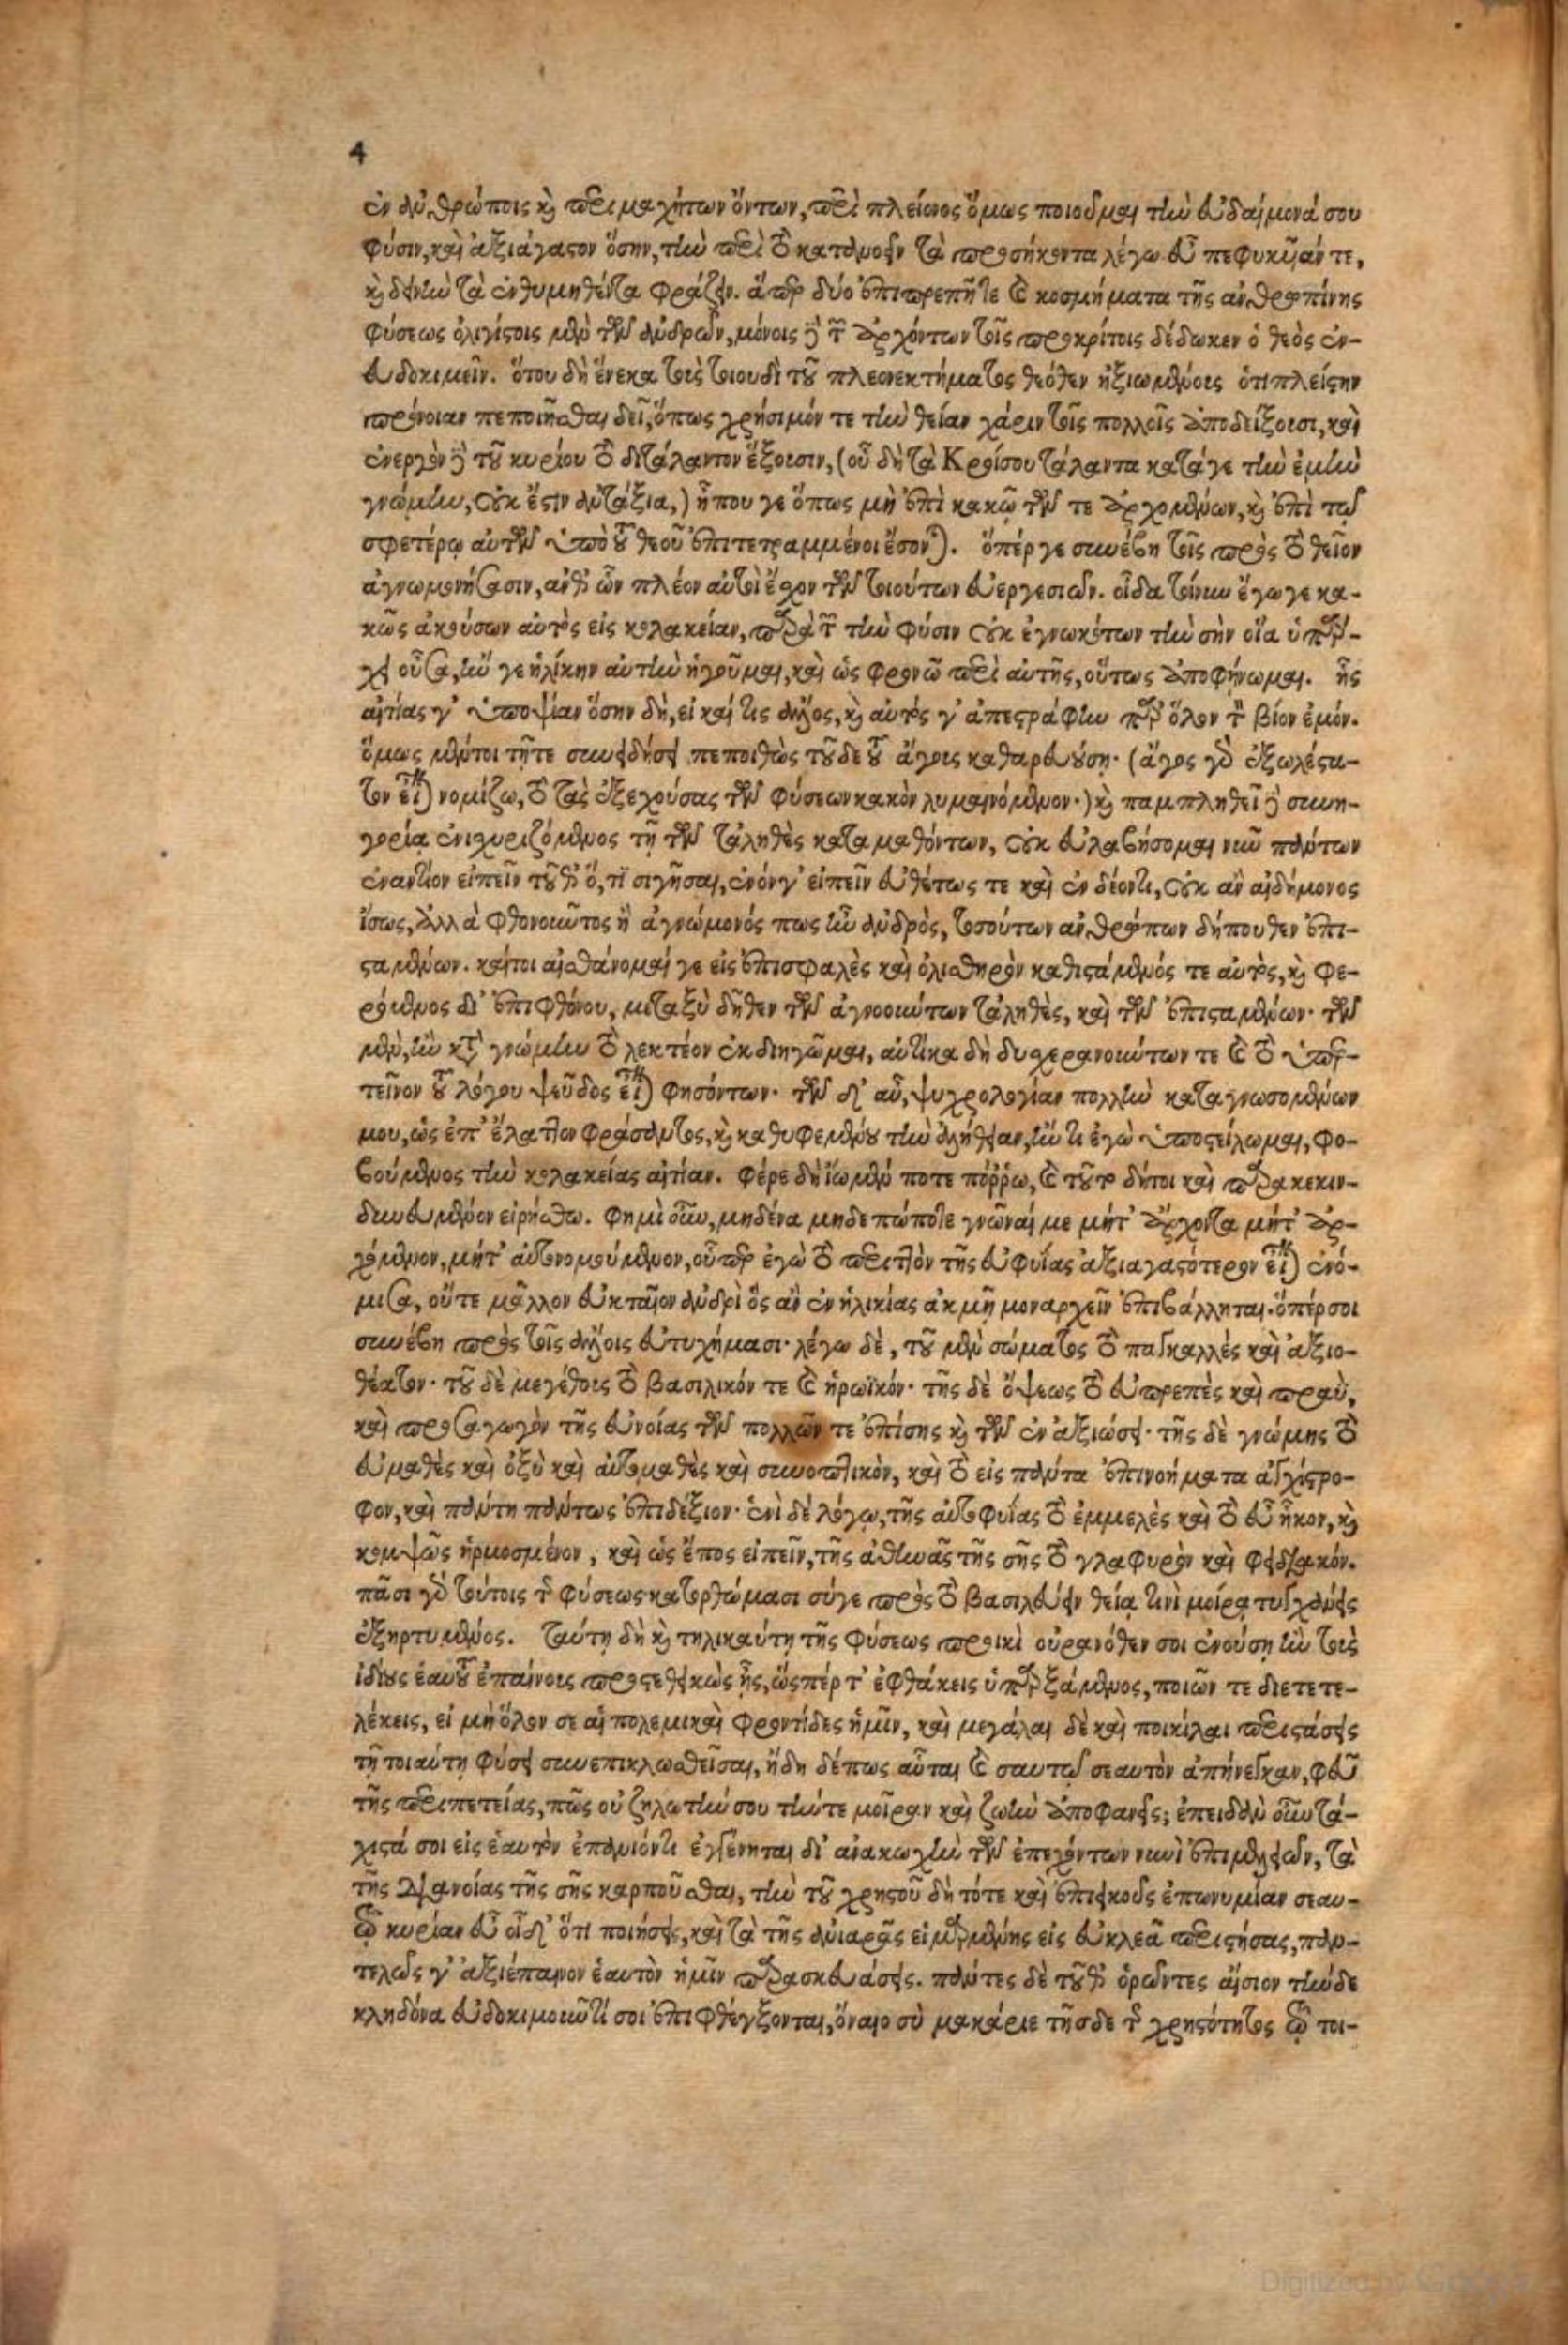 4
ἐν ἀνθρώποις καὶ περιμαχήτων ὄντων, περὶ πλείονος ὅμως ποιοῦμαι τὴν εὐδαίμονά σου
φύσιν, καὶ ἀξιάγαστον ὅσην, τὴν περὶ τὸ κατανοεῖν τὰ προσήκοντα λέγω εὖ πεφυκυῖάν τε,
καὶ δεινὴν τὰ ἐνθυμηθέντα φράζειν. ἅπερ δύο ἐπιπρεπῆ τε καὶ κοσμήματα τῆς ἀνθρωπίνης
φύσεως ὀλιγίστοις μὲν τῶν ἀνδρῶν, μόνοις δὲ τῶν ἀρχόντων τοῖς προκρίτοις δέδωκεν ὁ θεὸς ἐν-
ευδοκιμεῖν. ὅτου δὴ ἕνεκα τοὺς τοιουδὶ τοῦ πλεονεκτήματος θεόθεν ἠξιωμένους ὅτι πλείστην
πρόνοιαν πεποιῆσθαι δεῖ, ὅπως χρήσιμόν τε τὴν θείαν χάριν τοῖς πολλοῖς ἀποδείξουσι, καὶ
ἐνεργὸν δὲ τοῦ κυρίου τὸ διτάλαντον ἕξουσιν, (οὗ δὴ τὰ Κροίσου τάλαντα κατάγε τὴν ἐμὴν
γνώμην, οὐκ ἔστιν ἀντάξια,) ἦπου γε ὅπως μὴ ἐπὶ κακῷ τῶν τε ἀρχομένων, καὶ ἐπὶ τῷ
σφετέρῳ αὐτῶν ὑπὸ τοῦ θεοῦ ἐπιτετραμμένοι ἔσονται. ὅπέρ γε συνέβη τοῖς πρὸς τὸ θεῖον
ἀγνωμονήσασιν, ἀνθ’ ὧν πλέον αὐτοὶ ἔχον τῶν τοιούτων εὐεργεσιῶν. οἶδα τοίνυν ἔγωγε κα-
κῶς ἀκούσων αὐτὸς εἰς κολακείαν, παρὰ τῶν τὴν φύσιν οὐκ ἐγνωκότων τὴν σὴν οἵα ὑπάρ-
χει οὖσα, ἤν γε ἡλίκην αὐτὴν ἡγοῦμαι, καὶ ὡς φρονῶ περὶ αὐτῆς, οὕτως ἀποφήνωμαι. ἧς
αἰτίας γ’ ὑποψίαν ὅσην δὴ, εἰ καί τις ἄλλος, καὶ αὐτός γ’ ἀπεστράφην παρ’ ὅλον τὸν βίον ἐμόν.
ὅμως μέντοι τῇτε συνειδήσει πεποιθὼς τοῦδε τοῦ ἄγους καθαρευούσῃ· (ἄγος γὰρ ἐξωλέστα-
τον εἶναι νομίζω, τὸ τὰς ἐξεχούσας τῶν φύσεων κακὸν λυμαινόμενον·) καὶ παμπληθεῖ δὲ συνη-
γορίᾳ ἐνισχυριζόμενος τῇ τῶν τἀληθὲς καταμαθόντων, οὐκ εὐλαβήσομαι νῦν πάντων
ἐναντίον εἰπεῖν τοῦθ’ ὅ, τι σιγῆσαι, ἐνόν γ’ εἰπεῖν εὐθέτως τε καὶ ἐν δέοντι, οὐκ ἂν αἰδήμονος
ἴσως, ἀλλὰ φθονοῦντος ἢ ἀγνώμονός πως ἦν ἀνδρὸς, τοσούτων ἀνθρώπων δήπουθεν ἐπι-
σταμένων. καίτοι αἰσθάνομαί γε εἰς ἐπισφαλὲς καὶ ὀλισθηρὸν καθιστάμενός τε αὐτὸς, καὶ φε-
ρόμενος δι’ ἐπιφθόνου, μεταξὺ δῆθεν τῶν ἀγνοούντων τἀληθὲς, καὶ τῶν ἐπισταμένων· τῶν
μὲν, ἢν κατὰ γνώμην τὸ λεκτέον ἐκδιηγῶμαι, αὐτίκα δὴ δυσχερανούντων τε καὶ τὸ ὑπερ-
τεῖνον τοῦ λόγου ψεῦδος εἶναι φησόντων· τῶν δ’ αὖ, ψυχρολογίαν πολλὴν καταγνωσομένων
μου, ὡς ἐπ’ ἔλαττον φράσαντος, καὶ καθυφεμένου τὴν ἀλήθειαν, ἤν τι ἐγὼ ὑποστείλωμαι, φο-
βούμενος τὴν κολακείας αἰτίαν. φέρε δὴ ἴωμέν ποτε πόῤῥω, καὶ τοῦτο δήτοι καὶ παρακεκιν-
δυνευμένον εἰρήσθω. φημὶ οὖν, μηδένα μηδεπώποτε γνῶναί με μήτ’ ἄρχοντα μήτ’ ἀρ-
χόμενον, μήτ’ αὐτονομούμενον, οὗπερ ἐγὼ τὸ περιττὸν τῆς εὐφυΐας ἀξιαγαστότερον εἶναι ἐνό-
μισα, οὔτε μᾶλλον εὐκταῖον ἀνδρὶ ὃς ἂν ἐν ἡλικίας ἀκμῇ μοναρχεῖν ἐπιβάλληται. ὅπέρ σοι
συνέβη πρὸς τοῖς ἄλλοις εὐτυχήμασι· λέγω δὲ, τοῦ μὲν σώματος τὸ παγκαλλὲς καὶ ἀξιο-
θέατον· τοῦ δὲ μεγέθους τὸ βασιλικόν τε καὶ ἡρωϊκόν· τῆς δὲ ὄψεως τὸ εὐπρεπὲς καὶ πραῢ,
καὶ προσαγωγὸν τῆς εὐνοίας τῶν πολλῶν τε ἐπίσης καὶ τῶν ἐν ἀξιώσει· τῆς δὲ γνώμης τὸ
εὐμαθὲς καὶ ὀξὺ καὶ αὐτομαθὲς καὶ συνοπτικὸν, καὶ τὸ εἰς πάντα ἐπινοήματα ἀγχίστρο-
φον, καὶ πάντη πάντως ἐπιδέξιον· ἑνὶ δὲ λόγῳ, τῆς αὐτοφυΐας τὸ ἐμμελὲς καὶ τὸ εὖ ἧκον, καὶ
κομψῶς ἡρμοσμένον, καὶ ὡς ἔπος εἰπεῖν, τῆς ἀθηνᾶς τῆς σῆς τὸ γλαφυρὸν καὶ φειδιακόν.
πᾶσι γὰρ τούτοις τῆς φύσεως κατορθώμασι σύγε πρὸς τὸ βασιλεύειν θείᾳ τινὶ μοίρᾳ τυγχάνεις
ἐξηρτυμένος. ταύτῃ δὴ καὶ τηλικαύτῃ τῆς φύσεως προικὶ οὐρανόθεν σοι ἐνούσῃ ἢν τοὺς
ἰδίους ἑαυτοῦ ἐπαίνους προστεθεικὼς ᾖς, ὥσπέρ τ’ ἐφθάκεις ὑπαρξάμενος, ποιῶν τε διετετε-
λέκεις, εἰ μὴ ὅλον σε αἱ πολεμικαὶ φροντίδες ἡμῖν, καὶ μεγάλαι δὲ καὶ ποικίλαι περιστάσεις
τῇ τοιαύτῃ φύσει συνεπικλωσθεῖσαι, ἤδη δέπως αὗται καὶ σαυτῷ σεαυτὸν ἀπήνεγκαν, φεῦ
τῆς περιπετείας, πῶς οὐ ζηλωτήν σου τήντε μοῖραν καὶ ζωὴν ἀποφανεῖς; ἐπειδὰν οὖν τά-
χιστά σοι εἰς ἑαυτὸν ἐπανιόντι ἐγγένηται δι’ ἀνακωχὴν τῶν ἐπεχόντων νυνὶ ἐπιμελειῶν, τὰ
τῆς διανοίας τῆς σῆς καρποῦσθαι, τὴν τοῦ χρηστοῦ δὴ τότε καὶ ἐπιεικοῦς ἐπωνυμίαν σεαυ-
τῷ κυρίαν εὖ οἶδ’ ὅτι ποιήσεις, καὶ τὰ τῆς ἀνιαρᾶς εἱμαρμένης εἰς εὐκλεᾶ περιστήσας, παν-
τελῶς γ’ ἀξιέπαινον ἑαυτὸν ἡμῖν παρασκευάσεις. πάντες δὲ τοῦθ’ ὁρῶντες αἴσιον τήνδε
κληδόνα εὐδοκιμοῦντί σοι ἐπιφθέγξονται, ὄναιο σὺ μακάριε τῆσδε τῆς χρηστότητος τῷ τοι-